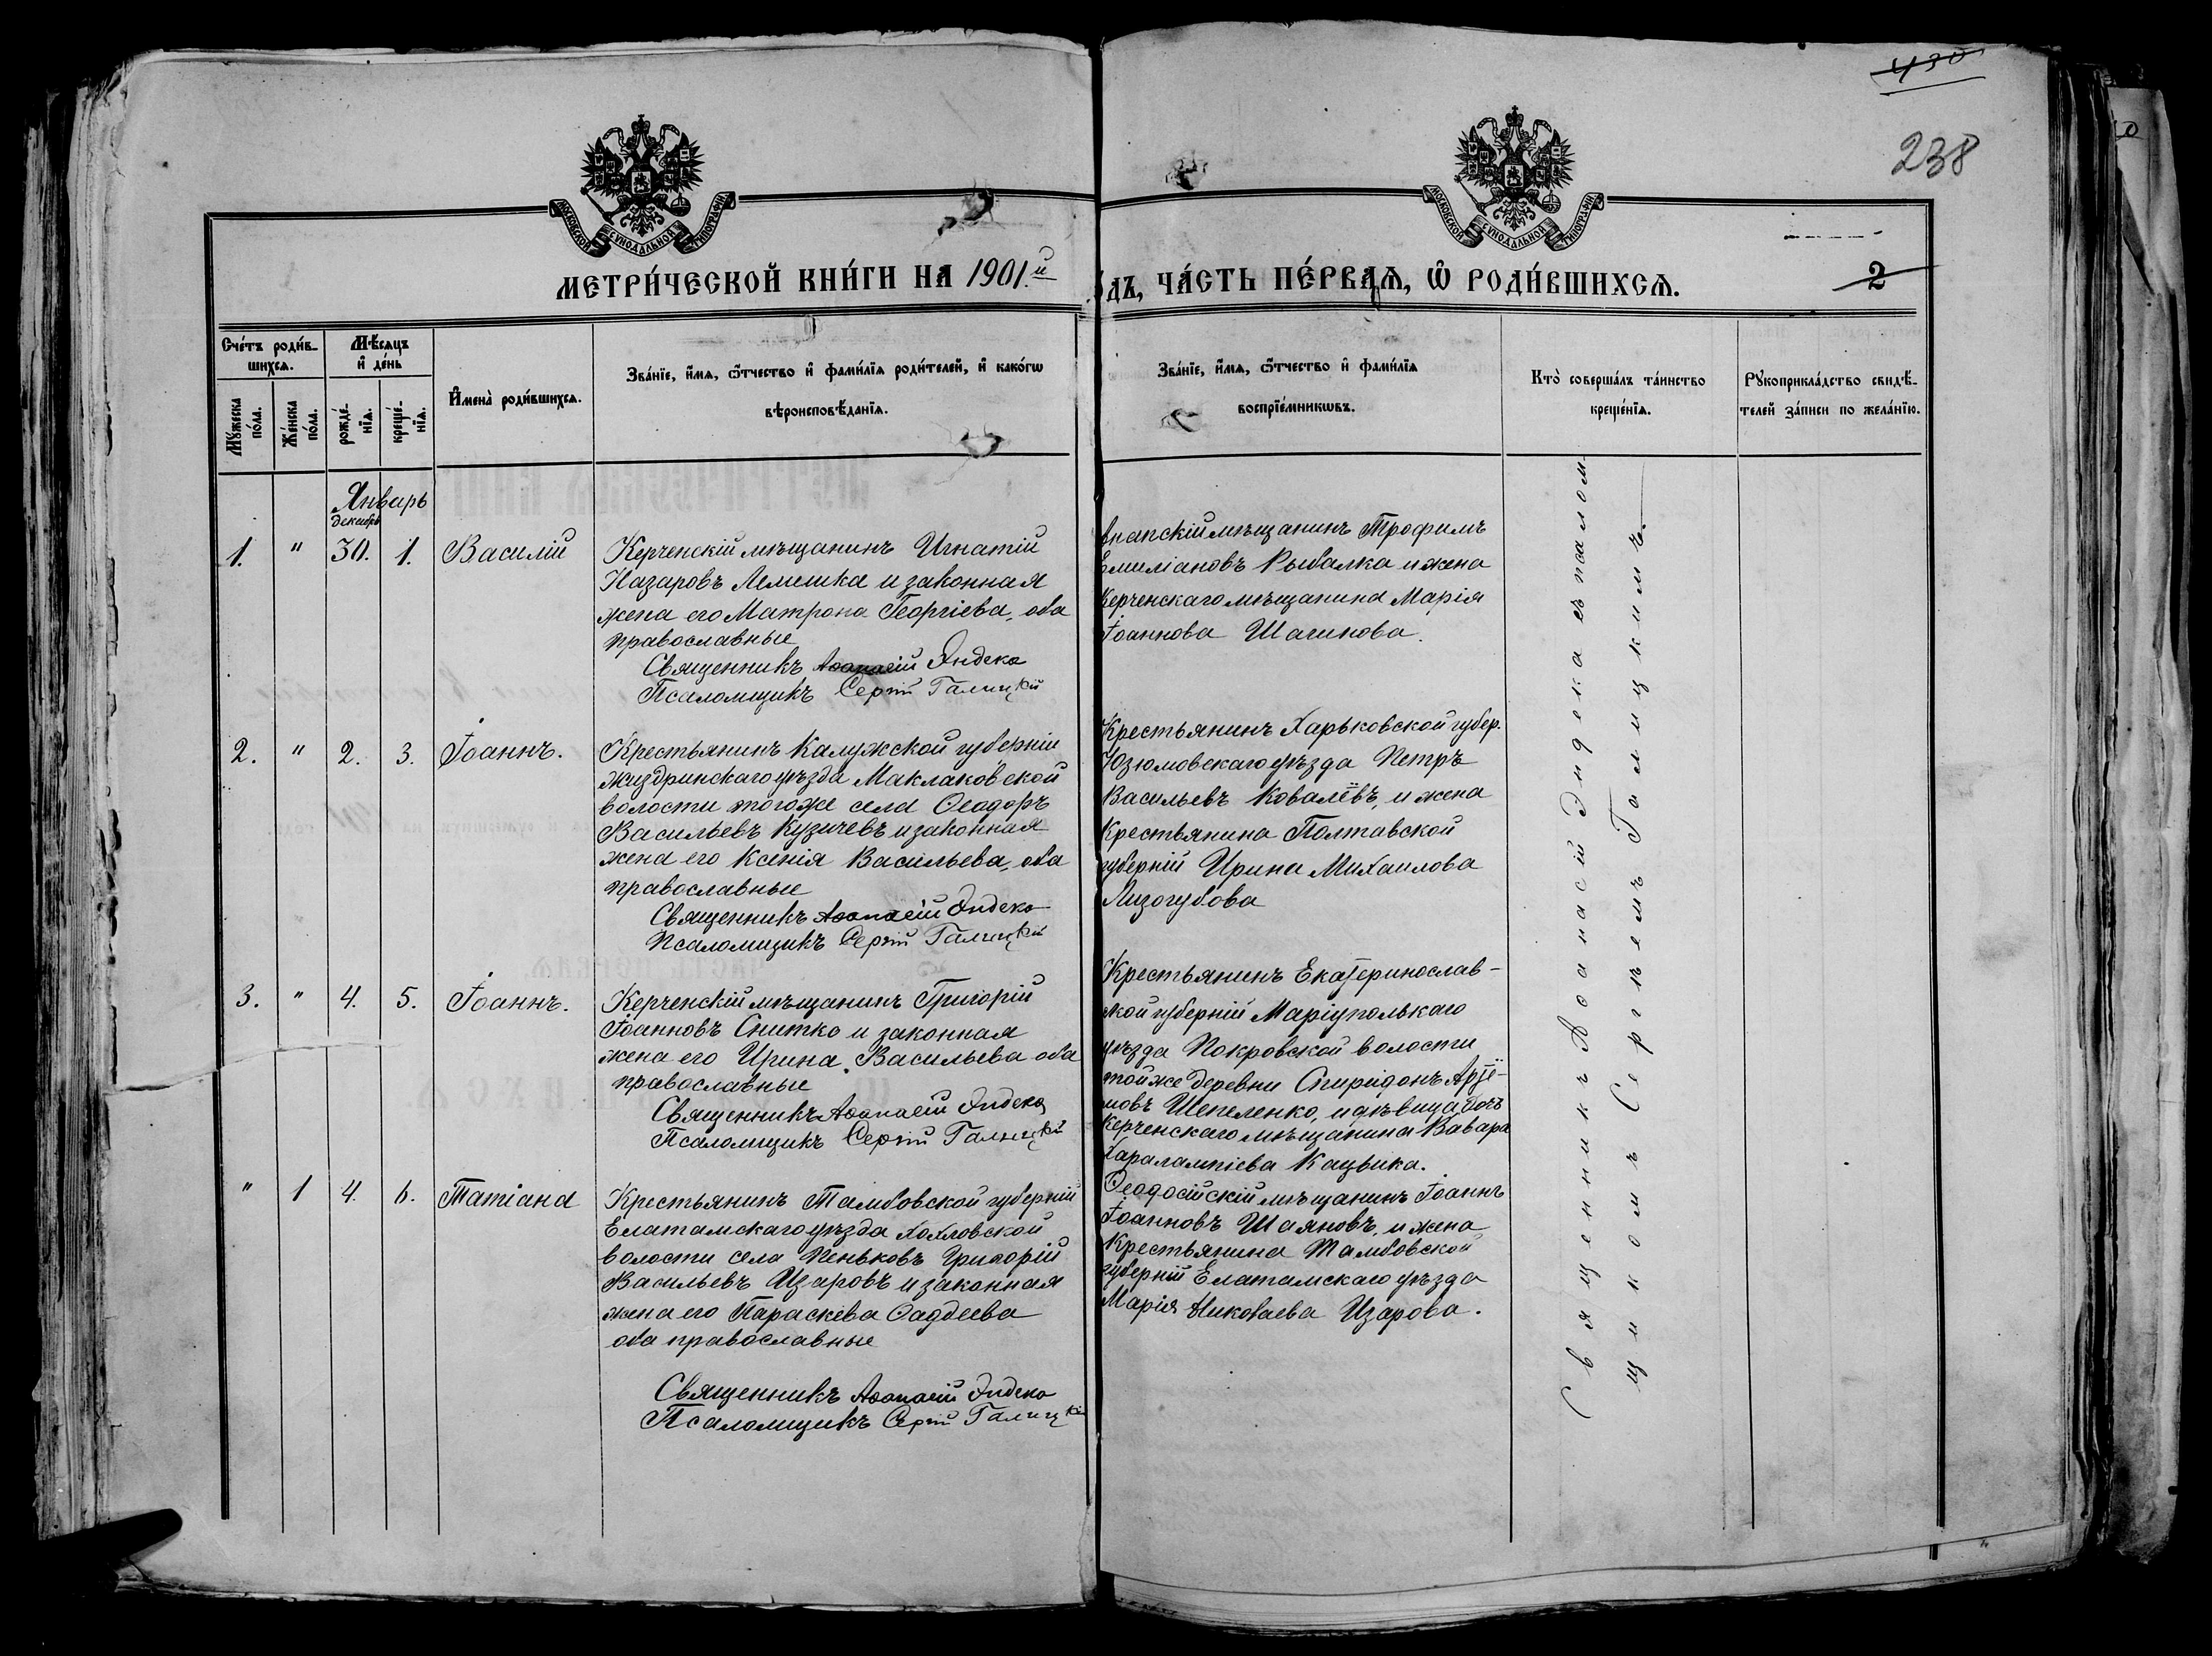 430
238
МОСКОВСКОЙ СѴНОДАЛЬНОЙ ТИПОГРАФІИ
МОСКОВСКОЙ СѴНОДАЛЬНОЙ ТИПОГРАФІИ
МЕТРИ́ЧЕСКОЙ КНИ́ГИ НА 1901.й
ДЪ, ЧА́СТЬ ПЕ́РВАѦ, Ѿ РОДИ́ВШИХСѦ.
2
Сче́тъ роди́в-
шихсѧ.
Мѣ́сѧцъ
и҆ де́нь
Мꙋ́жеска
по́ла.
Же́нска
по́ла.
рожде́-
нїѧ.
креще́-
нїѧ.
И҆мена̀ роди́вшихсѧ.
Зва́нїе, и҆́мѧ, ѻ҆́тчество и҆ фами́лїѧ роди́телей, и҆ како́гѡ
вѣроисповѣ́данїѧ.
Зва́нїе, и҆́мѧ, ѻ҆́тчество и҆ фами́лїѧ
воспрїе́мникѡвъ.
Кто̀ соверша́лъ та́инство
креще́нїѧ.
Рꙋкоприкла́дство свидѣ́-
телей за́писи по жела́нїю.
Январь
декабрь
1. " 30. 1. Василій
Керченскій мѣщанинъ Игнатій
Назаровъ Лемешка и законная
жена его Матрона Георгіева, оба
православные
Священникъ Аѳанасій Эндека
Псаломщикъ Сергій Галицкій
мѣщанинъ Трофимъ
Емиліановъ Рыбалка и жена
Керченскаго мѣщанина Марія
Іоаннова Шагинова.
2. " 2. 3. Іоаннъ.
Крестьянинъ Калужской губерніи
Жиздринскаго уѣзда Маклаковской
волости тогоже села Ѳеодоръ
Васильевъ Кузичевъ и законная
жена его Ксенія Васильева, оба
православные
Священникъ Аѳанасій Эндека
Псаломщикъ Сергій Галицкій
Крестьянинъ Харьковской губер.
Юзюмовскаго уѣзда Петръ
Васильевъ Ковалёвъ, и жена
Крестьянина Полтавской
губерній Ирина Михаилова
Лизогубова
3. " 4. 5. Іоаннъ.
Керченскій мѣщанинъ Григорій
Іоанновъ Снитко и законная
жена его Ирина Васильева оба
православные
Священникъ Аѳанасій Эндека
Псаломщикъ Сергій Галицкій
Крестьянинъ Екатеринослав-
ской губерній Маріуполькаго
уѣзда Покровской волости
тойже деревни Спиридонъ Артё-
мовъ Шепеленко, и дѣвица дочь
Керченскаго мѣщанина Вавара
Харалампіева Кацыка.
" 1 4. 6. Татіана
Крестьянинъ Тамбовской губерній
Елатамскаго уѣзда Хохловской
волости села Пеньковъ Григорій
Васильевъ Изаровъ и законная
жена его Параскева Ѳаддеева
оба православные
Священникъ Аѳанасій Эндека
Псаломщикъ Сергій Галицкій
Ѳеодосійскій мѣщанинъ Іоаннъ
Іоанновъ Шаяновъ, и жена
Крестьянина Тамбовской
губерній Елатамскаго уѣзда
Марія Николаева Изарова.
Священникъ Аѳанасій Эндека съ псалом-
щикомъ Сергіемъ Галицкимъ.